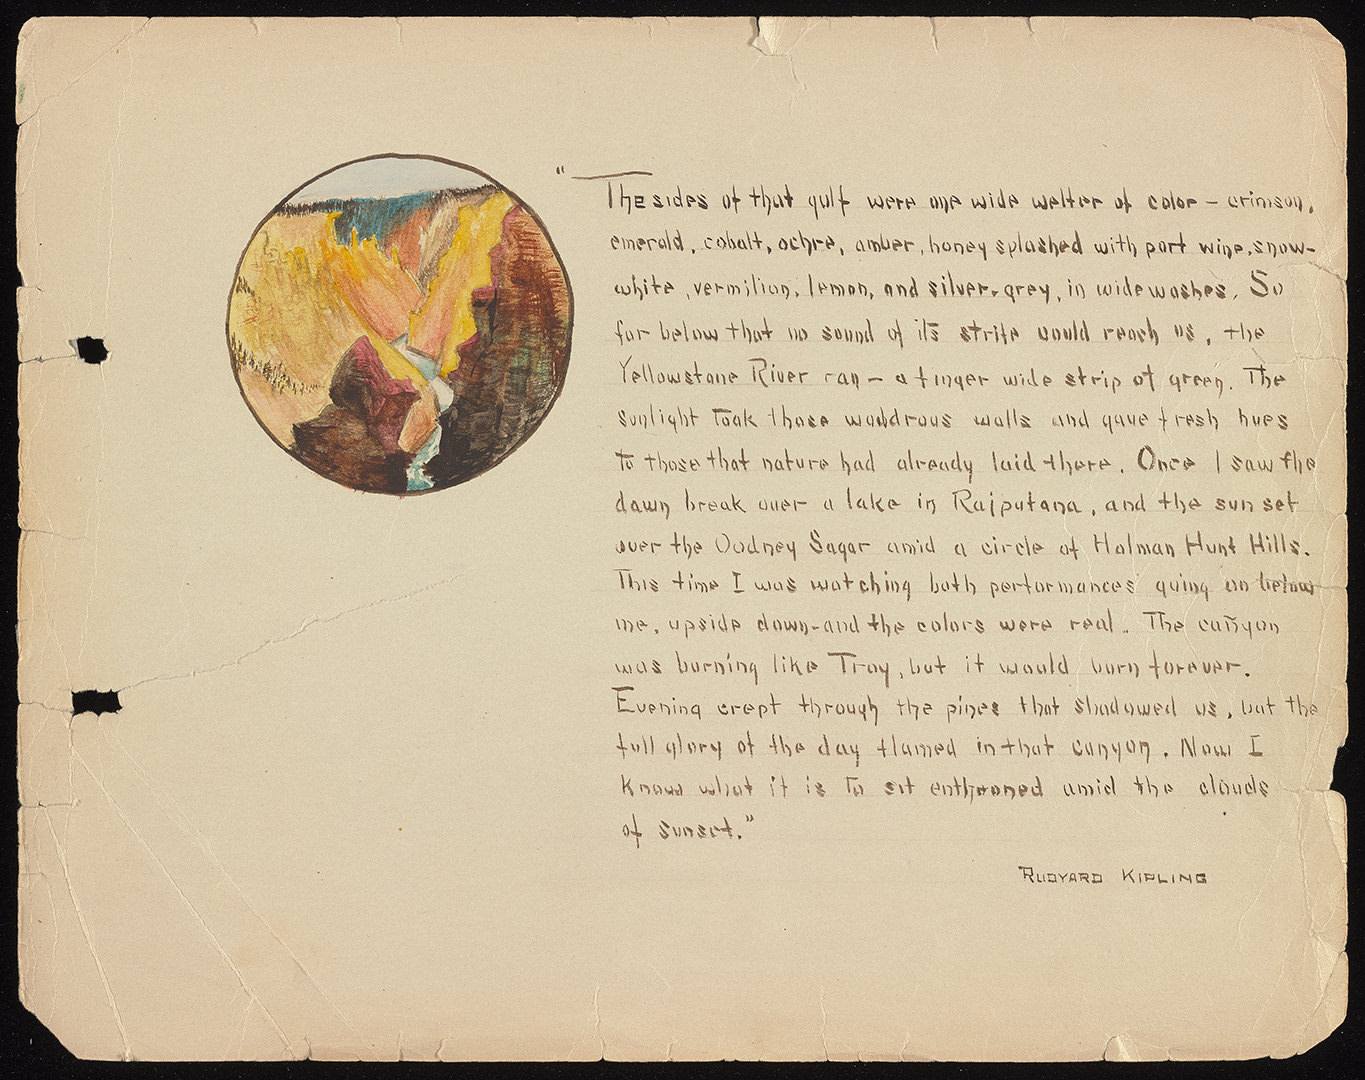 "The sides of that gulf were one wide welter of color – crimson,
emerald, cobalt, ochre, amber, honey splashed with port wine, snow-
white, vermilion, lemon, and silver-grey, in wide washes. So
far below that no sound of its strife could reach us, the
Yellowstone River ran – a finger wide strip of green. The
sunlight took those wondrous walls and gave fresh hues
to those that nature had already laid there. Once I saw the
dawn break over a lake in Rajputana, and the sun set
over the Oodney Sagar amid a circle of Holman Hunt Hills.
This time I was watching both performances going on below
me, upside down-and the colors were real. The cañyon
was burning like Troy, but it would burn forever.
Evening crept through the pines that shadowed us, but the
full glory of the day flamed in that canyon. Now I
know what it is to sit enthroned amid the clouds
of sunset."
RUDYARD KIPLING